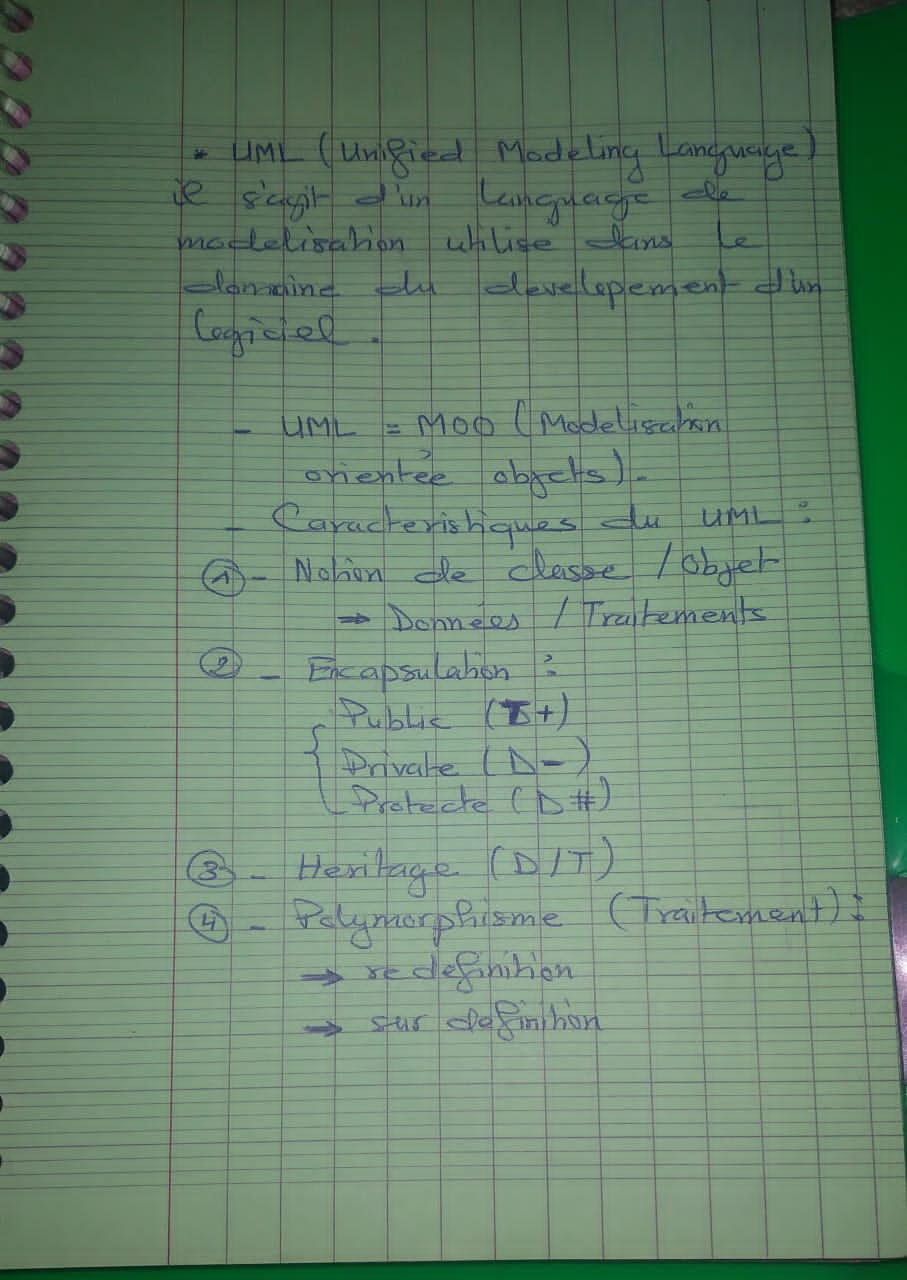 * UML (Unified Modeling Language)
il s'agit d'un language de
modelisation utilise dans le
domaine du developement d'un
logiciel.
- UML = MOO (Modelisation
orientée objets).
- Caracteristiques du UML :
① - Notion de classe / Objet
⇒ Données / Traitements
② - Encapsulation :
Public (+)
Private (D -)
Protecte (D #)
③ - Heritage (D/T)
④ - Polymorphisme (Traitement) :
⇒ re definition
⇒ sur definition